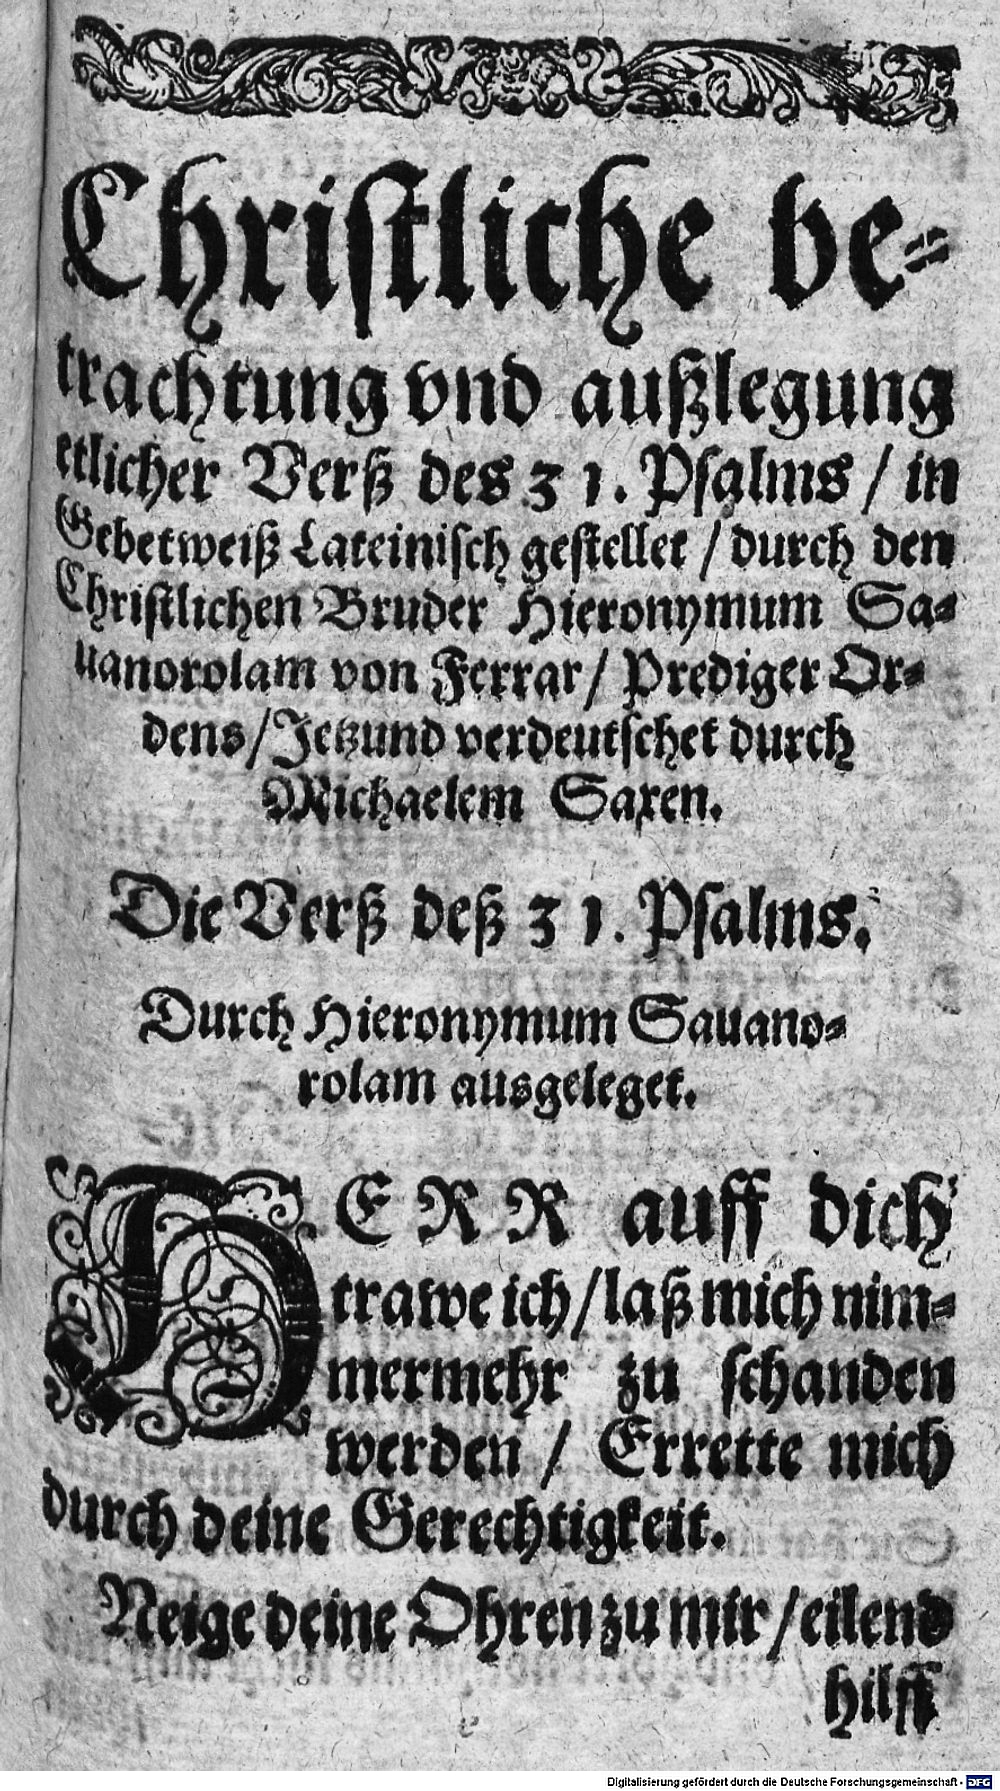 Christliche be-
trachtung vnd außlegung
etlicher Verß des 31. Psalms / in
Gebetweiß Lateinisch gestellet / durch den
Christlichen Bruder Hieronymum Sa-
uanorolam von Ferrar / Prediger Or-
dens / Jetzund verdeutschet durch
Michaelem Saxen.
Die Verß deß 31. Psalms.
Durch Hieronymum Sauano-
rolam ausgeleget.
HERR auff dich
trawe ich / laß mich nim-
mermehr zu schanden
werden / Errette mich
durch deine Gerechtigkeit.
Neige deine Ohren zu mir / eilend
hilff
Digitalisierung gefördert durch die Deutsche Forschungsgemeinschaft - DFG